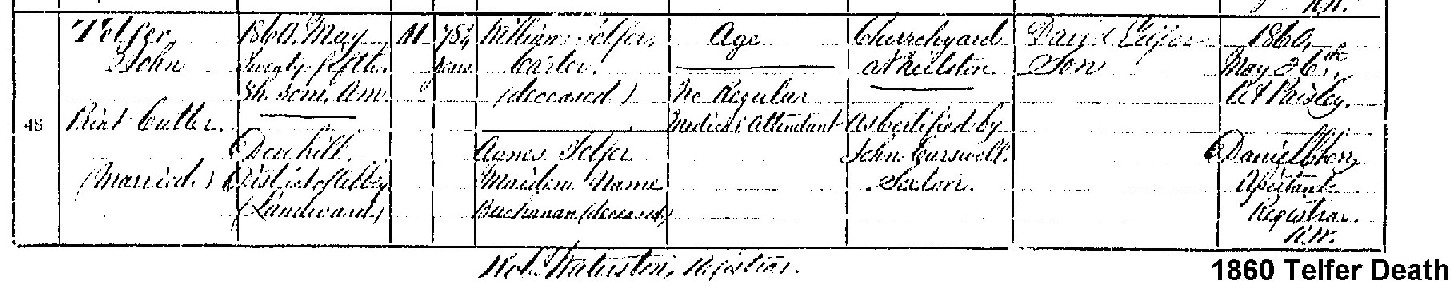 48
Telfer
John
Print Cutter.
(Married)
1860, May
Twenty fifth
5h. 30m. A.M.
District of Abbey
(Landward)
M
78½
years
William Telfer,
Carter.
(deceased)
Agnes Telfer
Maiden Name
Buchanan (deceased)
Age
No Regular
Medical Attendant
Churchyard
at Neilston
As Certified by
John Carswell.
Sexton.
David Telfer
Son
1860,
May 26th
At Paisley.
Daniel
Assistant
Registrar.
R.W.
Robt. Waterston, Registrar.
1860 Telfer Death